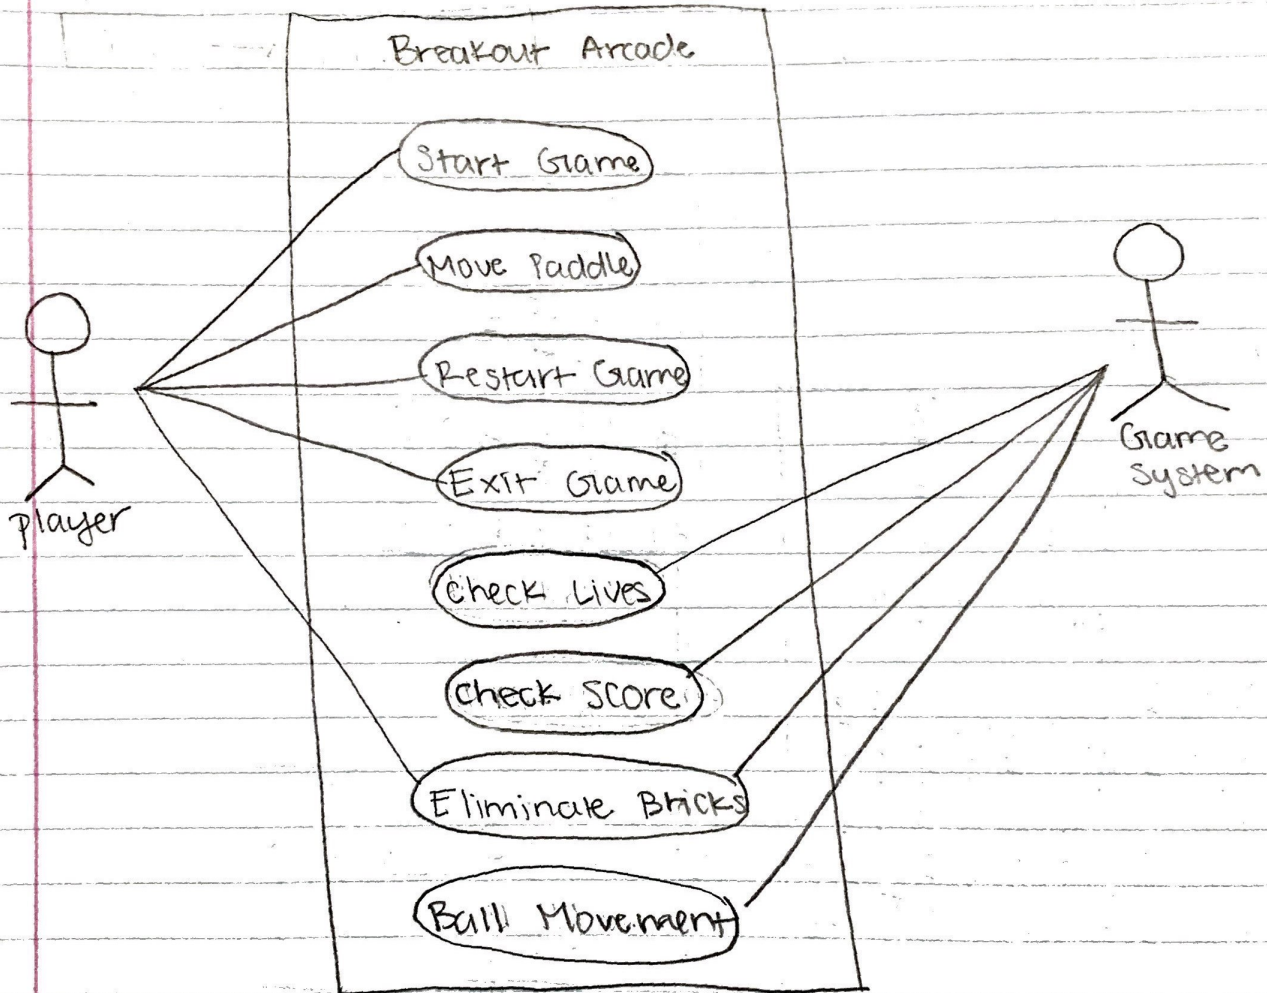 Breakout Arcade
Start Game
Move Paddle
Restart Game
Exit Game
Check Lives
Check Score
Eliminate Bricks
Ball Movement
player
Game
System